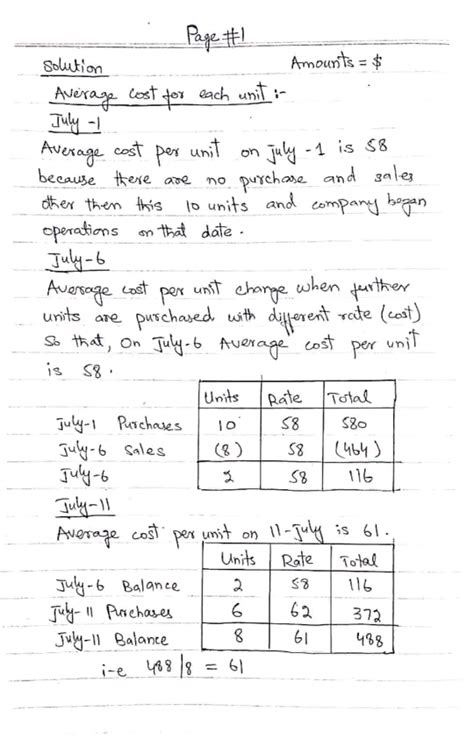 Page #1
Solution Amounts = $
Average cost for each unit :-
July -1
Average cost per unit on July -1 is 58
because there are no purchase and sales
other then this 10 units and company began
operations on that date.
July-6
Average cost per unit change when further
units are purchased with different rate (cost)
So that, On July-6 Average cost per unit
is 58.
Units Rate Total
July-1 Purchases 10 58 580
July-6 Sales (8) 58 (464)
July-6 2 58 116
July-11
Average cost per unit on 11-July is 61.
Units Rate Total
July-6 Balance 2 58 116
July-11 Purchases 6 62 372
July-11 Balance 8 61 488
i-e 488/8 = 61